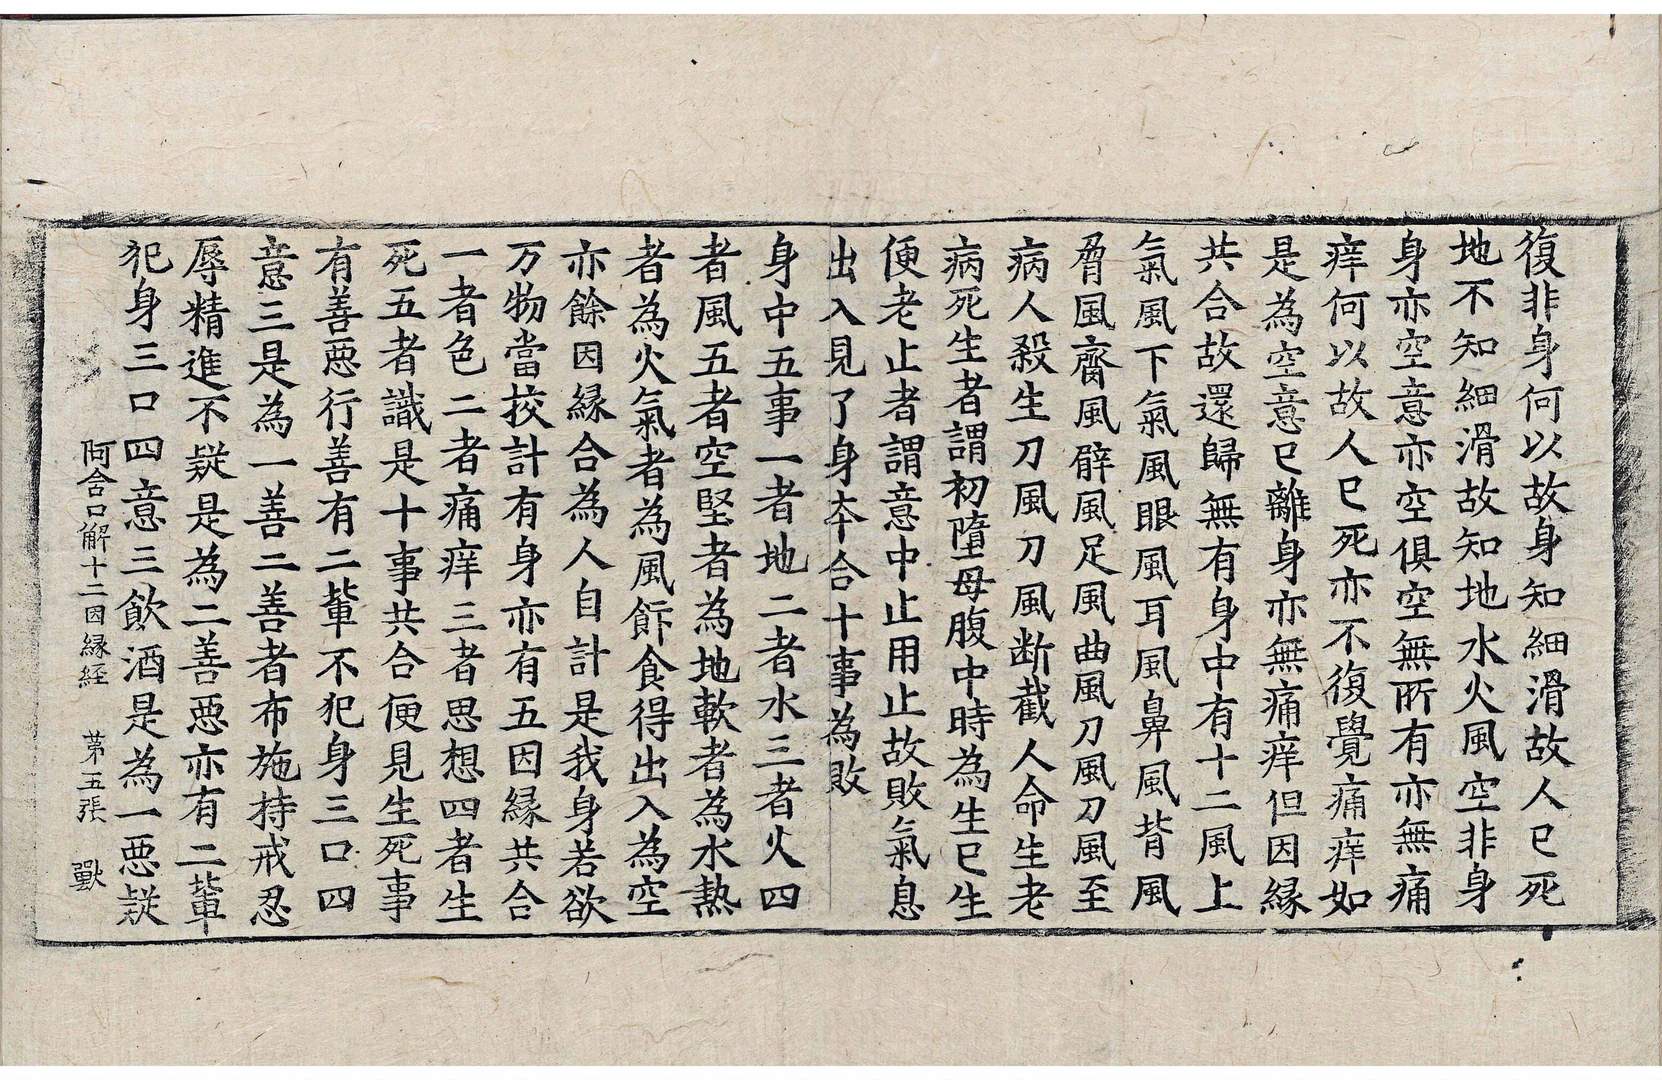 復非身何以故身知細滑故人已死
地不知細滑故知地水火風空非身
身亦空意亦空俱空無所有亦無痛
痒何以故人已死亦不復覺痛痒如
是為空意已離身亦無痛痒但因緣
共合故還歸無有身中有十二風上
氣風下氣風眼風耳風鼻風背風
脅風齎風臂風足風曲風刀風刀風至
病人殺生刀風刀風断截人命生老
病死生者謂初墮母腹中時為生已生
便老止者謂意中止用止故敗氣息
出入見了身夲合十事為敗
身中五事一者地二者水三者火四
者風五者空堅者為地軟者為水熱
者為火氣者為風飾食得出入為空
亦餘因緣合為人自計是我身若欲
万物當挍計有身亦有五因緣共合
一者色二者痛痒三者思想四者生
死五者識是十事共合便見生死事
有善惡行善有二軰不犯身三口四
意三是為一善二善者布施持戒忍
辱精進不疑是為二善惡亦有二軰
犯身三口四意三飲酒是為一惡疑
阿含口解十二因緣経 第五張